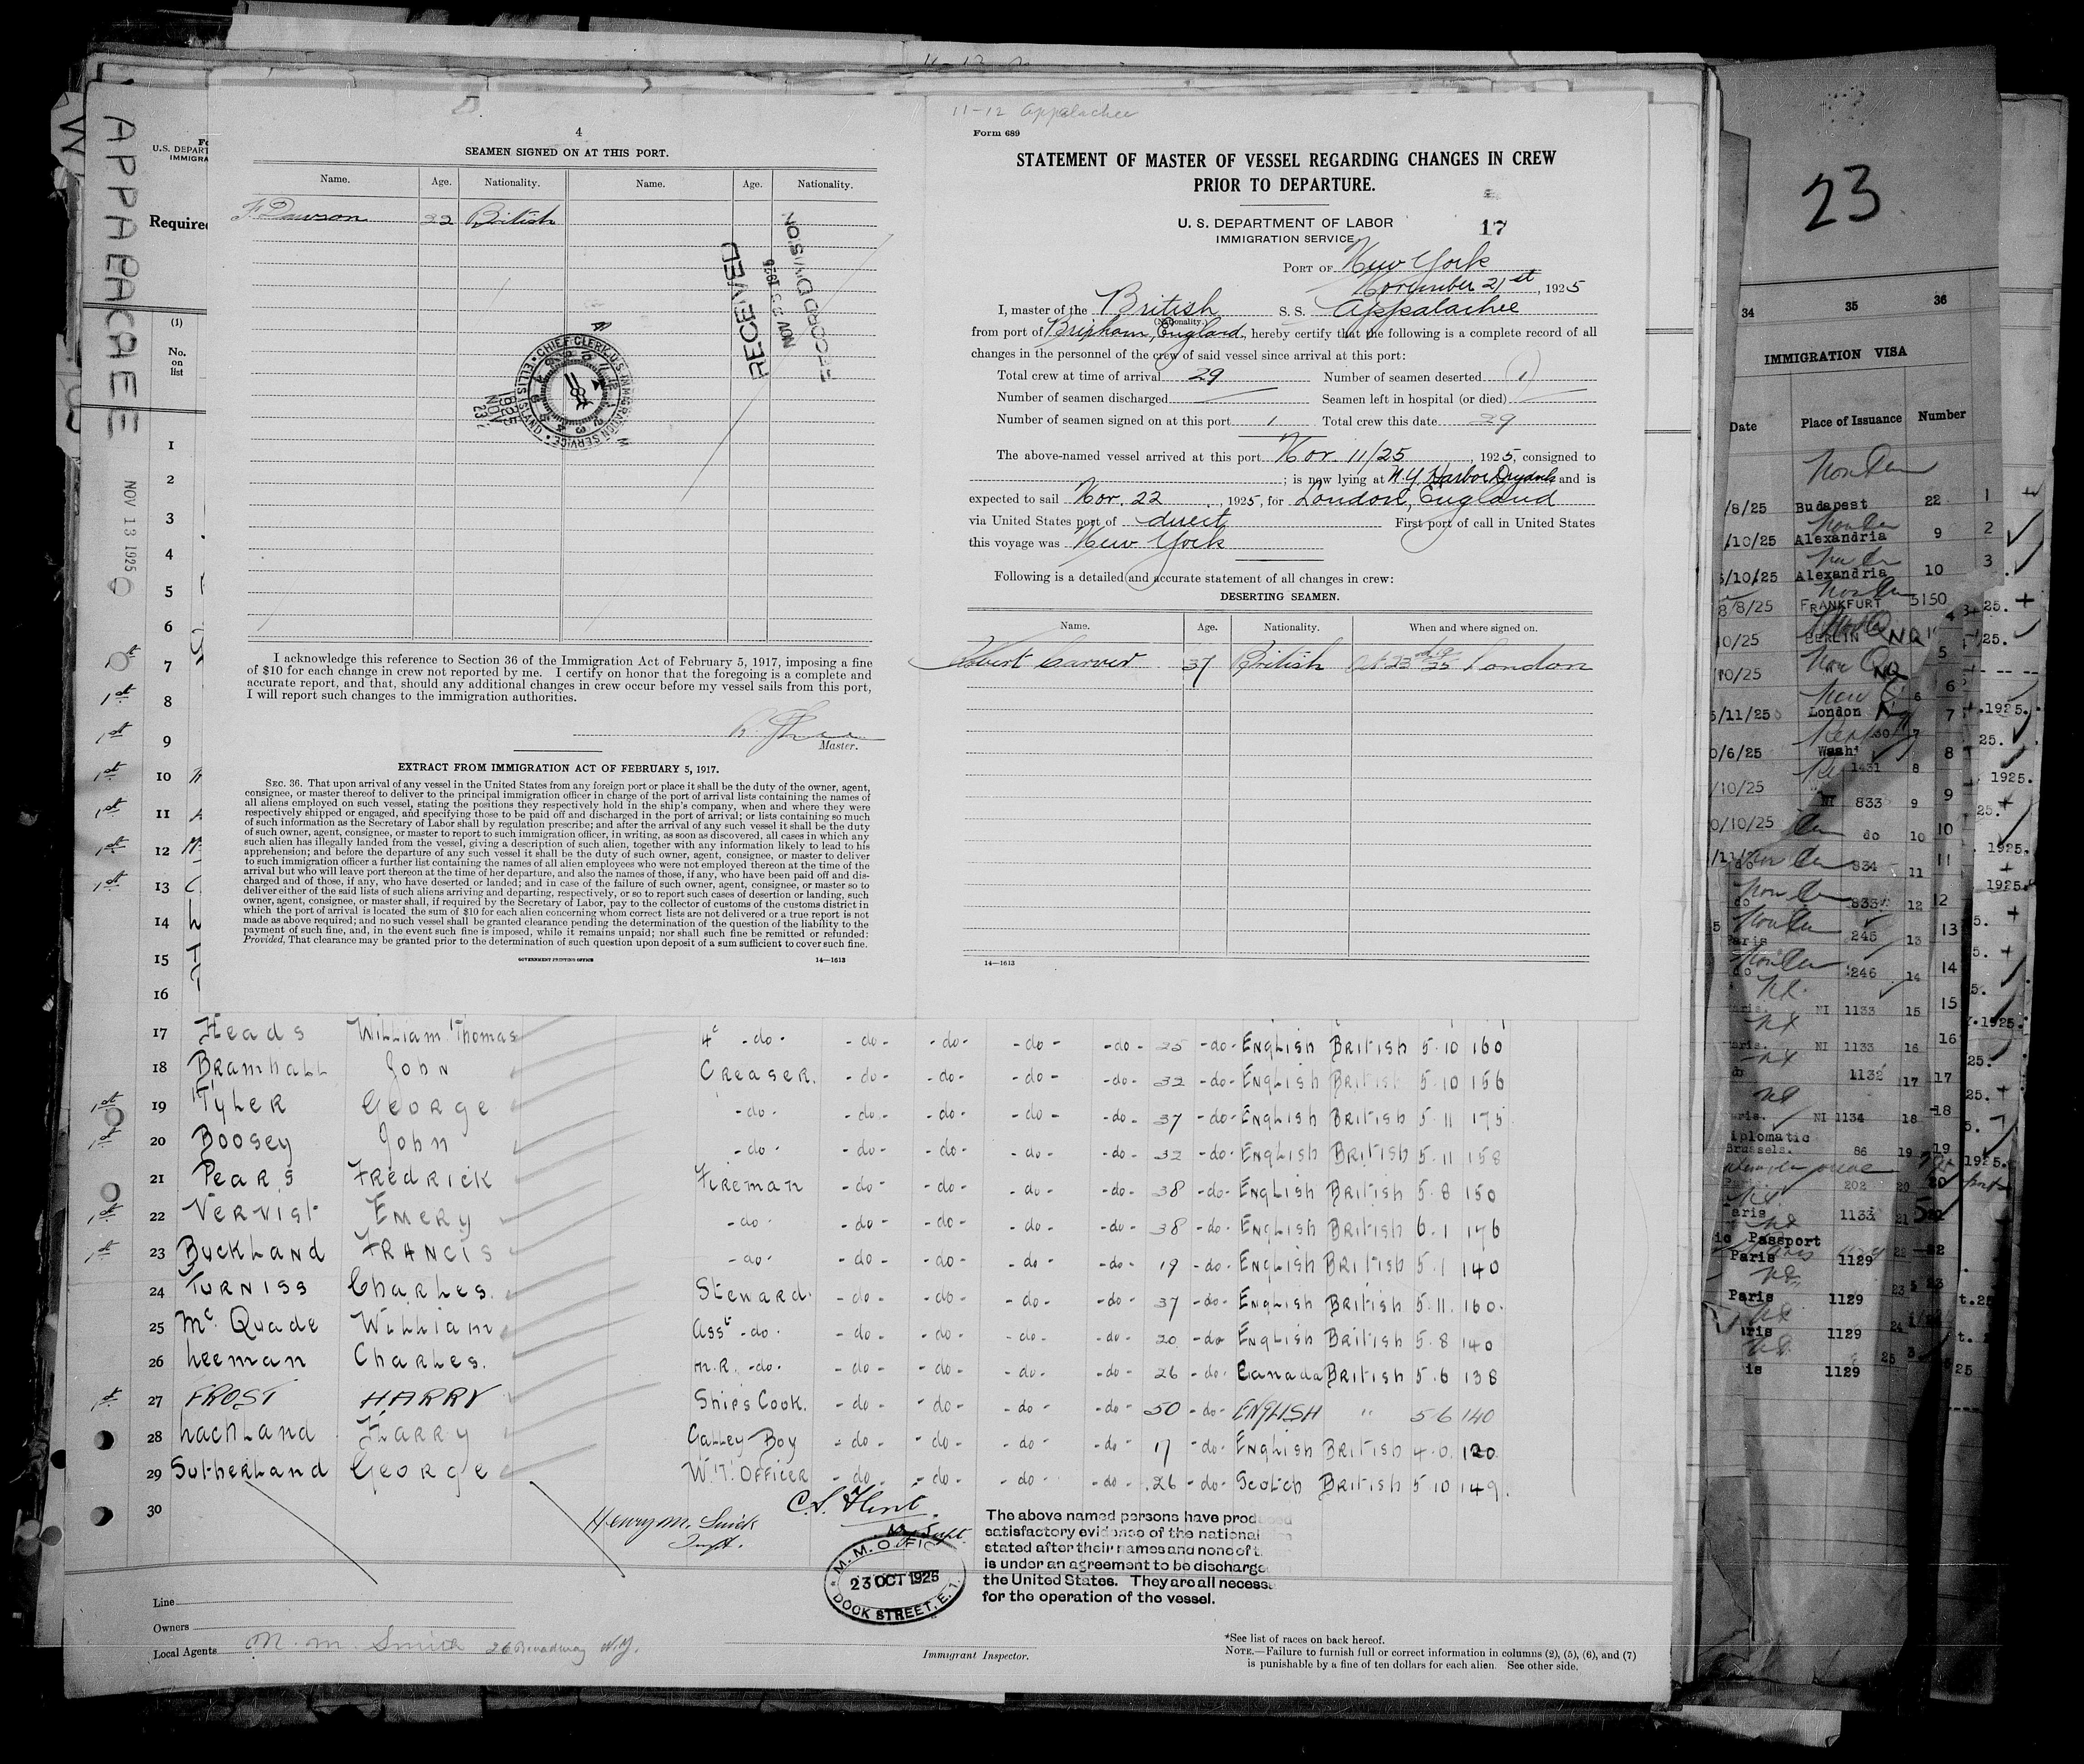 4
SEAMEN SIGNED ON AT THIS PORT.
Name. Age. Nationality. Name. Age. Nationality.
F. Dawson 22 British
RECEIVED
NOV 23 1925
RECORD DIVISION
CHIEF CLERK, U.S. IMMIGRATION SERVICE
ELLIS ISLAND
1925 NOV 23
I acknowledge this reference to Section 36 of the Immigration Act of February 5, 1917, imposing a fine
of $10 for each change in crew not reported by me. I certify on honor that the foregoing is a complete and
accurate report, and that, should any additional changes in crew occur before my vessel sails from this port,
I will report such changes to the immigration authorities.
Master.
EXTRACT FROM IMMIGRATION ACT OF FEBRUARY 5, 1917.
SEC. 36. That upon arrival of any vessel in the United States from any foreign port or place it shall be the duty of the owner, agent,
consignee, or master thereof to deliver to the principal immigration officer in charge of the port of arrival lists containing the names of
all aliens employed on such vessel, stating the positions they respectively hold in the ship's company, when and where they were
respectively shipped or engaged, and specifying those to be paid off and discharged in the port of arrival; or lists containing so much
of such information as the Secretary of Labor shall by regulation prescribe; and after the arrival of any such vessel it shall be the duty
of such owner, agent, consignee, or master to report to such immigration officer, in writing, as soon as discovered, all cases in which any
such alien has illegally landed from the vessel, giving a description of such alien, together with any information likely to lead to his
apprehension; and before the departure of any such vessel it shall be the duty of such owner, agent, consignee, or master to deliver
to such immigration officer a further list containing the names of all alien employees who were not employed thereon at the time of the
arrival but who will leave port thereon at the time of her departure, and also the names of those, if any, who have been paid off and dis-
charged and of those, if any, who have deserted or landed; and in case of the failure of such owner, agent, consignee, or master so to
deliver either of the said lists of such aliens arriving and departing, respectively, or so to report such cases of desertion or landing, such
owner, agent, consignee, or master shall, if required by the Secretary of Labor, pay to the collector of customs of the customs district in
which the port of arrival is located the sum of $10 for each alien concerning whom correct lists are not delivered or a true report is not
made as above required; and no such vessel shall be granted clearance pending the determination of the question of the liability to the
payment of such fine, and, in the event such fine is imposed, while it remains unpaid; nor shall such fine be remitted or refunded:
Provided, That clearance may be granted prior to the determination of such question upon deposit of a sum sufficient to cover such fine.
GOVERNMENT PRINTING OFFICE 14—1613
11-12 Appalachee
Form 689
STATEMENT OF MASTER OF VESSEL REGARDING CHANGES IN CREW
PRIOR TO DEPARTURE.
U. S. DEPARTMENT OF LABOR
IMMIGRATION SERVICE
17
PORT OF New York
November 21st, 1925
I, master of the British S. S. Appalachee
(Nationality.)
from port of Brixham, England, hereby certify that the following is a complete record of all
changes in the personnel of the crew of said vessel since arrival at this port:
Total crew at time of arrival 29 Number of seamen deserted (1)
Number of seamen discharged Seamen left in hospital (or died)
Number of seamen signed on at this port 1 Total crew this date 29
The above-named vessel arrived at this port Nov. 11/25, 1925, consigned to
; is now lying at N.Y. Harbor Drydock and is
expected to sail Nov. 22, 1925, for London, England
via United States port of direct First port of call in United States
this voyage was New York
Following is a detailed and accurate statement of all changes in crew:
DESERTING SEAMEN.
Name. Age. Nationality. When and where signed on.
Robert Carver 37 British Oct. 23rd 25 London
14—1613
APPALACHEE
NOV 13 1925
U.S. DEPART
IMMIGRA
Required
(1)
No. on list
1
2
3
4
5
6
7
1st 8
1st 9
1st 10
1st 11
1st 12
1st 13
14
15
16
17 Heads William Thomas 4th -do- -do- -do- -do- -do- 25 -do- English British 5.10 160
18 Bramhall John Greaser. -do- -do- -do- -do- 32 -do- English British 5.10 156
1st 19 Tyler George -do- -do- -do- -do- -do- 37 -do- English British 5.11 175
1st 20 Boosey John -do- -do- -do- -do- -do- 32 -do- English British 5.11 158
21 Pears Fredrick Fireman -do- -do- -do- -do- 38 -do- English British 5.8 150
1st 22 Vervist Emery -do- -do- -do- -do- -do- 38 -do- English British 6.1 176
1st 23 Buckland Francis -do- -do- -do- -do- -do- 19 -do- English British 5.1 140
24 Turniss Charles. Steward. -do- -do- -do- -do- 37 -do- English British 5.11. 160.
25 McQuade William Asst -do- -do- -do- -do- -do- 20 -do- English British 5.8 140
26 Leeman Charles. M.R. -do- -do- -do- -do- -do- 26 -do- Canada British 5.6 138
27 FROST HARRY Ships Cook. -do- -do- -do- -do- 50 -do- ENGLISH " 5.6 140
28 Lachland Harry Galley Boy -do- -do- -do- -do- 17 -do- English British 4.0. 120
29 Sutherland George W.T. Officer -do- -do- -do- -do- 26 -do- Scotch British 5.10 149.
30
Henry M. Smick
Inspt.
M. M. OFFICE
23 OCT 1925
DOCK STREET, E.1.
The above named persons have produced
satisfactory evidence of the national
stated after their names and none of t
is under an agreement to be discharge
the United States. They are all necess
for the operation of the vessel.
Line
Owners
Local Agents 26 Broadway N.Y.
Immigrant Inspector.
*See list of races on back hereof.
NOTE.—Failure to furnish full or correct information in columns (2), (5), (6), and (7)
is punishable by a fine of ten dollars for each alien. See other side.
23
34 35 36
IMMIGRATION VISA
Date Place of Issuance Number
/8/25 Budapest 22 1
/10/25 Alexandria 9 2
5/10/25 Alexandria 10 3
8/8/25 FRANKFURT 5150
10/25 BERLIN
10/25
5/11/25 London
0/6/25 Wash
1431 8
/10/25 NI 833 9
0/10/25 do 10
do 834 11
do 833 12
Paris 245 13
do 246 14
NI 1133 15
NI 1133 16
do 1132 17
NI 1134 18
iplomatic
Brussels. 86 19
202 20
aris 1133 21
Passport
Paris 1129 22
Paris 1129 23
ris 1129 24
is 1129 25